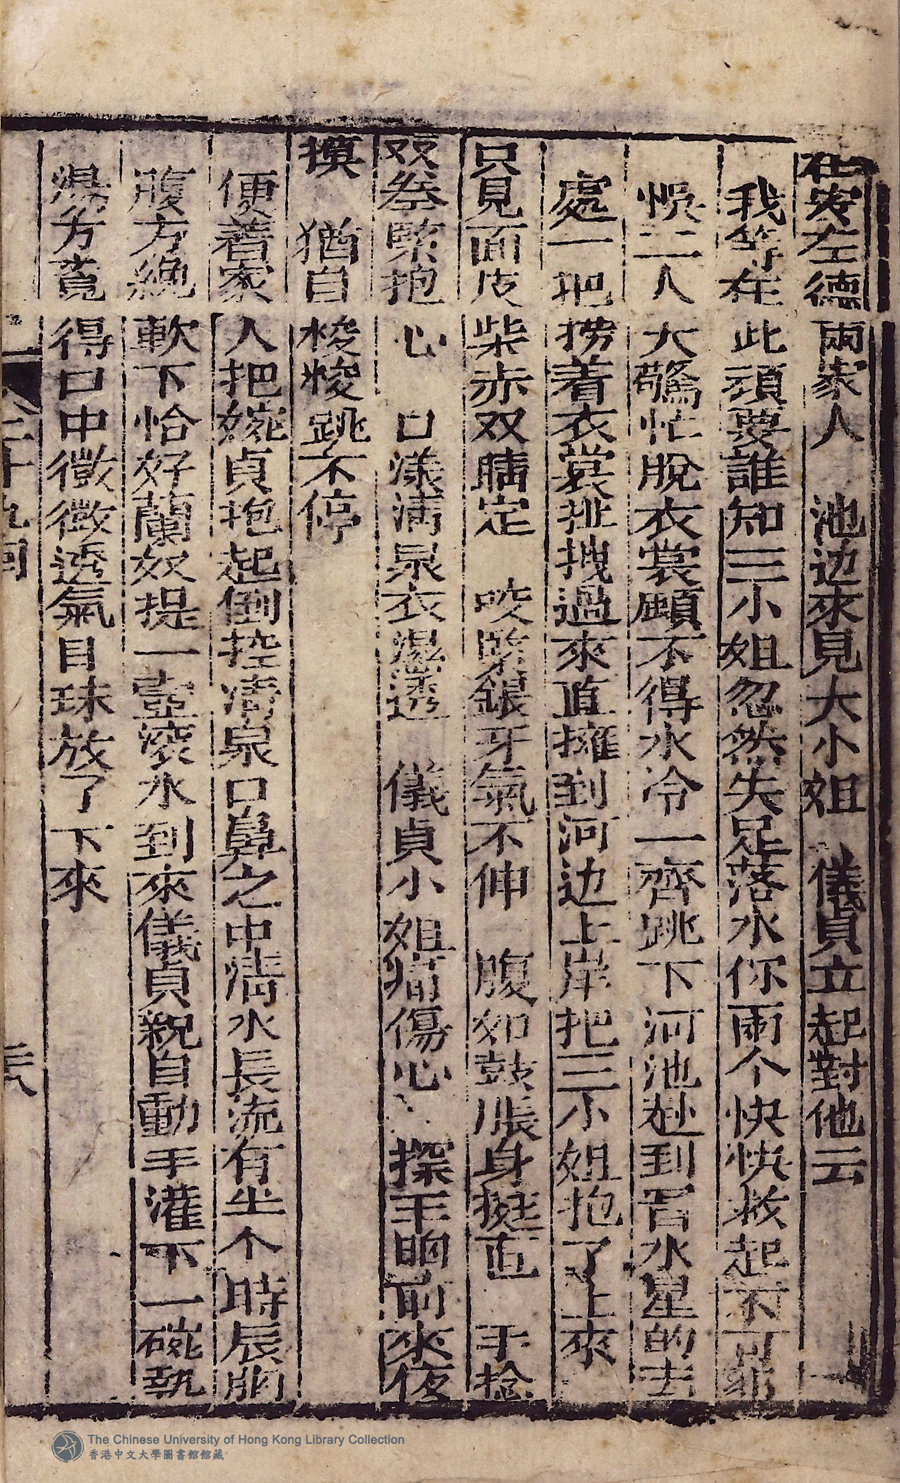 杜安左德 兩家人 池边來見大小姐 儀貞立起對他云
我等在此頭要 誰知三小姐忽然失足落水你兩个快快救起不可
悞二人大驚忙脫衣裳顧不得水冷一齊跳下河池赴到冒水星的去
處一把撈着衣裳扯拽過來直擁到河边上岸把三小姐抱了上來
只見面皮柴赤双睛定 咬緊銀牙氣不伸 腹如鼓脹身挺直 手捻
双叅緊抱心 口漾淸泉衣濕透 儀貞小姐痛傷心 探手胸前來夜
摸 猶自梭梭跳不停
便着家人把婉貞抱起倒控淸泉口鼻之中淸水長流有半个時辰胸
腹方緩軟下恰好蘭奴提一壺滚水到來儀貞親自動手灌下一碗熱
湯方覔得口中微微透氣目珠放了下來
二十九囘
三八
The Chinese University of Hong Kong Library Collection
香港中文大學圖書館館藏